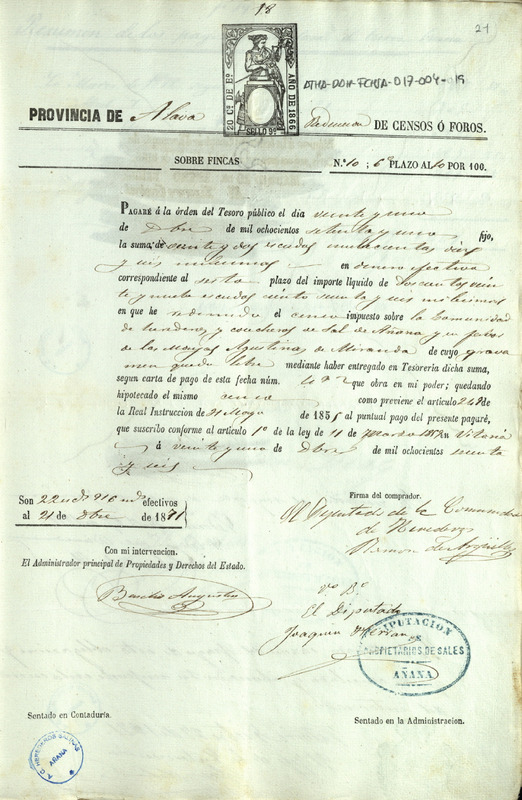 18
21
20 Cs. DE Eo. AÑO DE 1866
SELLO 9º
ATHA-DOH-FCHSA-017-004-19
PROVINCIA DE Alava Redencion DE CENSOS Ó FOROS.
SOBRE FINCAS N.º 10 ; 6º PLAZO AL 10 POR 100.
PAGARÉ á la órden del Tesoro público el dia veinte y uno
de Dbre de mil ochocientos setenta y uno fijo,
la suma de veinte y dos escudos novecientos diez
y seis milesimas en dinero efectivo
correspondiente al sesto plazo del importe líquido de Doscientos vein
te y nueve escudos ciento sesenta y seis milesimas
en que he redimido el censo impuesto sobre la Comunidad
de herederos y cosecheros de Sal de Añana y en favor
de las Monjas Agustinas de Miranda de cuyo grava
men queda libre mediante haber entregado en Tesorería dicha suma,
segun carta de pago de esta fecha núm. que obra en mi poder; quedando
hipotecado el mismo censo como previene el artículo
la Real Instruccion de 31 Mayo de 1855 al puntual pago del presente pagaré,
que suscribo conforme al artículo 1º de la ley de 11 de Marzo en Vitoria
á veinte y uno de Dbre de mil ochocientos sesenta
y seis
Son 22 escds 916 mils efectivos
al 21 de Dbre de 1871
Firma del comprador.
El Diputado de la Comunidad
de Herederos
Ramon de
Con mi intervencion.
El Administrador principal de Propiedades y Derechos del Estado.
Vº Bº
El Diputado
Joaquin
DIPUTACION
DE
PROPIETARIOS DE SALES
AÑANA
Sentado en Contaduría.
Sentado en la Administracion.
A. C. HEREDEROS SALINAS
AÑANA